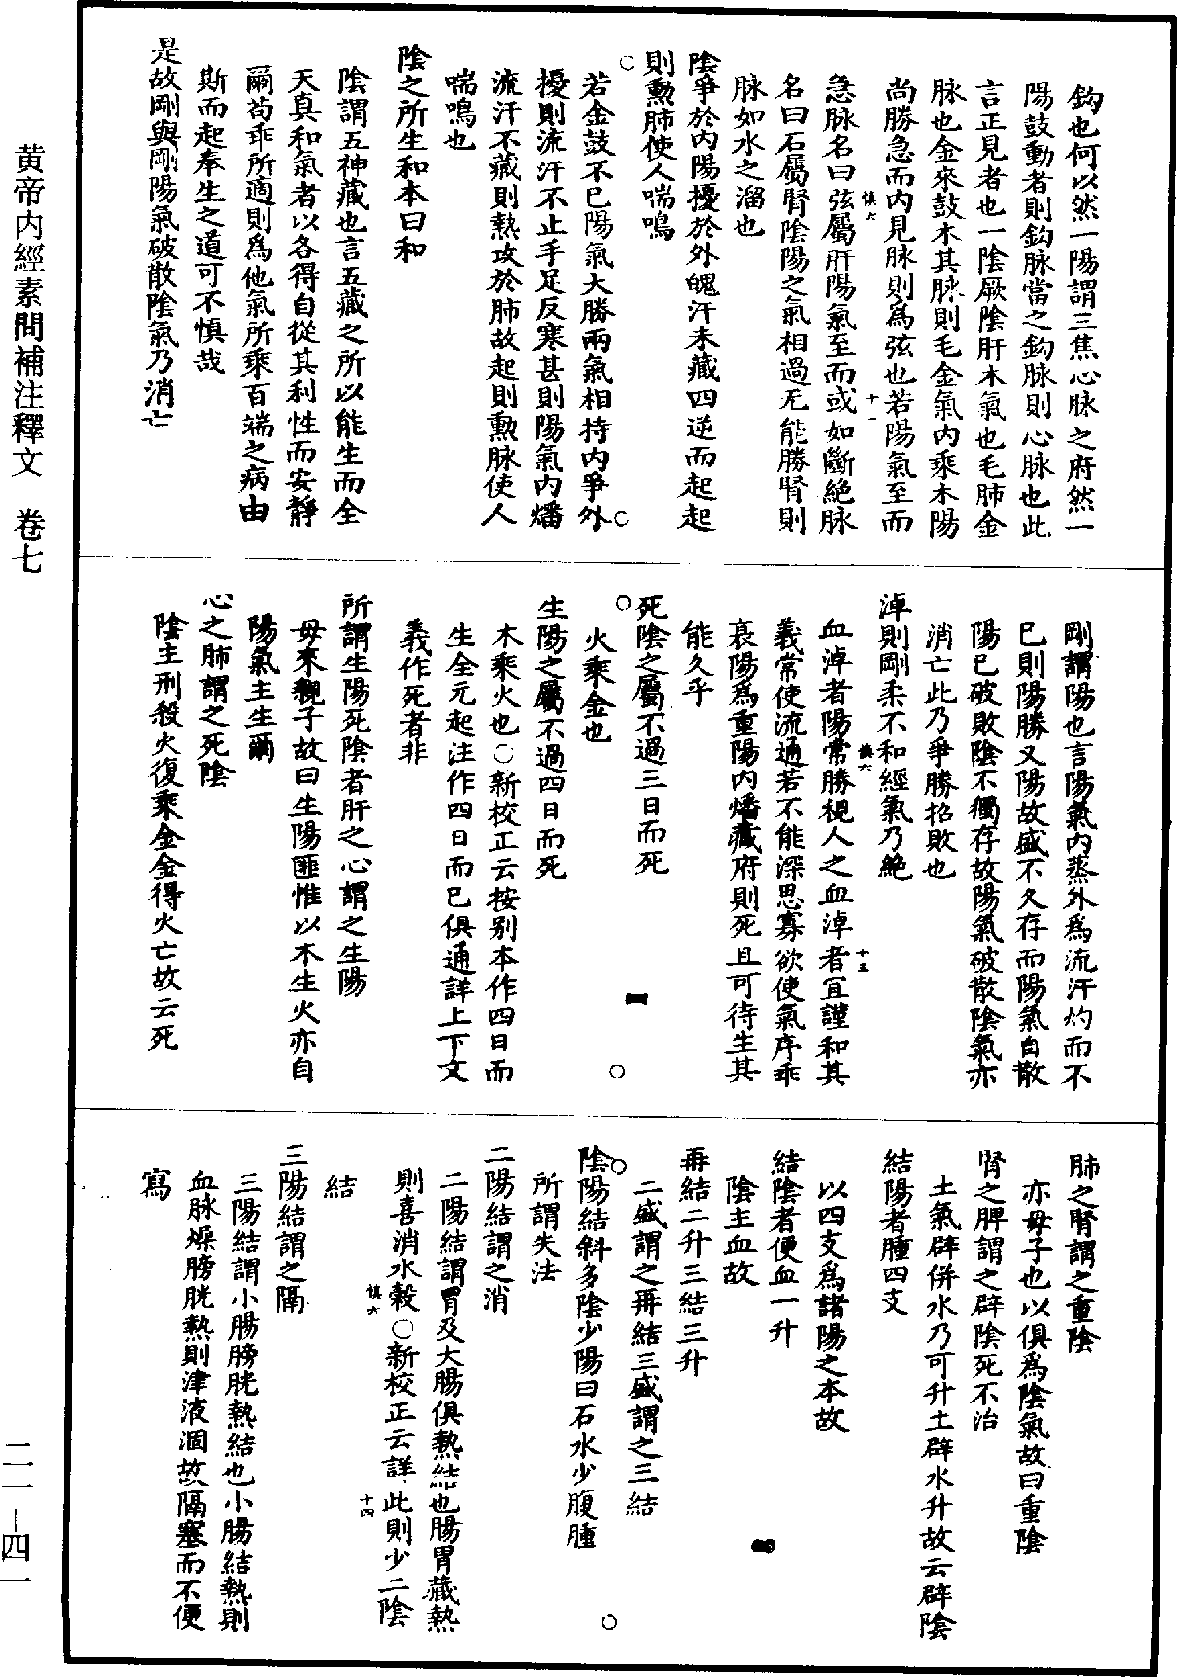 鈎也何以然一陽謂三焦心脉之府然一
陽鼓動者則鈎脉當之鈎脉則心脉也此
言正見者也一陰厥陰肝木氣也毛肺金
脉也金來鼓木其脉則毛金氣内乘木陽
尚勝急而内見脉則為弦也若陽氣至而
急脉名曰弦屬肝陽氣至而或如斷絶脉
慎六
十一
名曰石屬腎陰陽之氣相過无能勝腎則
脉如水之溜也
陰爭於内陽擾於外魄汗未藏四逆而起起
則熏肺使人喘鳴
若金鼓不已陽氣大勝兩氣相持内爭外
擾則流汗不止手足反寒甚則陽氣内燔
流汗不藏則熱攻於肺故起則熏脉使人
喘鳴也
陰之所生和本曰和
陰謂五神藏也言五藏之所以能生而全
天真和氣者以各得自從其利性而安靜
爾苟乖所適則為他氣所乘百端之病由
斯而起奉生之道可不慎哉
是故剛與剛陽氣破散陰氣乃消亡
剛謂陽也言陽氣内蒸外為流汗灼而不
已則陽勝又陽故盛不久存而陽氣自散
陽已破敗陰不獨存故陽氣破散陰氣亦
消亡此乃爭勝招敗也
淖則剛柔不和經氣乃絶
慎六
十五
血淖者陽常勝視人之血淖者宜謹和其
義常使流通若不能深思寡欲使氣序乖
衷陽為重陽内燔藏府則死且可待生其
能久乎
死陰之屬不過三日而死
火乘金也
生陽之屬不過四日而死
木乘火也○新校正云按别本作四日而
生全元起注作四日而已俱通詳上下文
義作死者非
所謂生陽死陰者肝之心謂之生陽
母來親子故曰生陽匪惟以木生火亦自
陽氣主生爾
心之肺謂之死陰
陰主刑殺火復乘金金得火亡故云死
肺之腎謂之重陰
亦母子也以俱為陰氣故曰重陰
腎之脾謂之辟陰死不治
土氣辟併水乃可升土辟水升故云辟陰
結陽者腫四支
以四支為諸陽之本故
結陰者便血一升
陰主血故
再結二升三結三升
二盛謂之再結三盛謂之三結
陰陽結斜多陰少陽曰石水少腹腫
所謂失法
二陽結謂之消
二陽結謂胃及大腸俱熱結也腸胃藏熱
則喜消水穀○新校正云詳此則少二陰
慎六
十四
結
三陽結謂之隔
三陽結謂小腸膀胱熱結也小腸結熱則
血脉燥膀胱熱則津液涸故隔塞而不便
寫
黄帝内經素問補注釋文 卷七
二一－四一